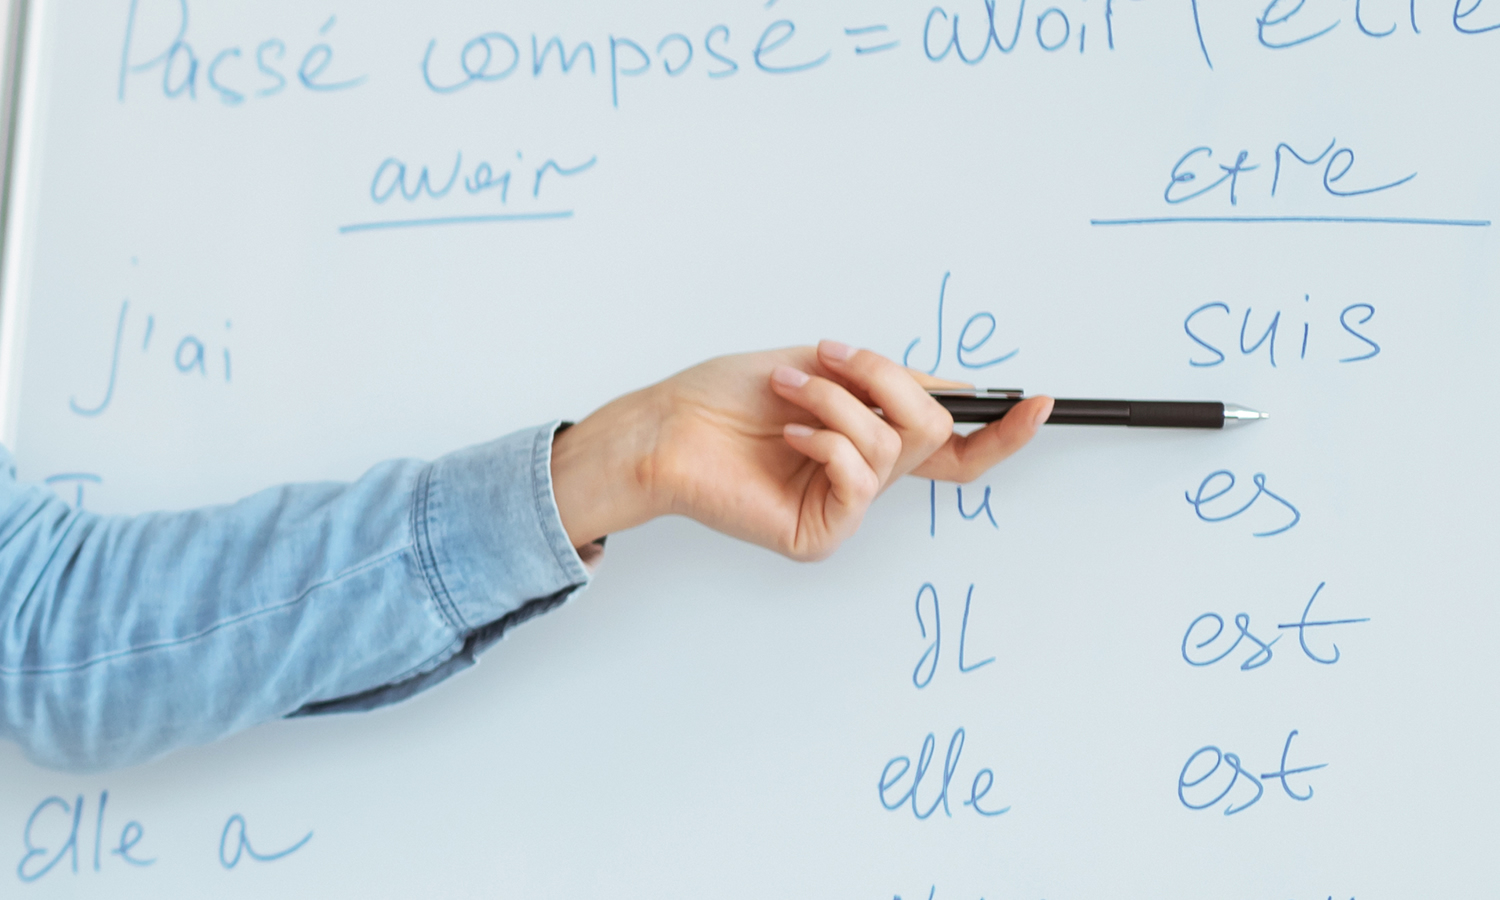 Passé composé = avoir / etre
avoir
etre
J'ai
Je suis
Tu es
Il est
elle est
Elle a